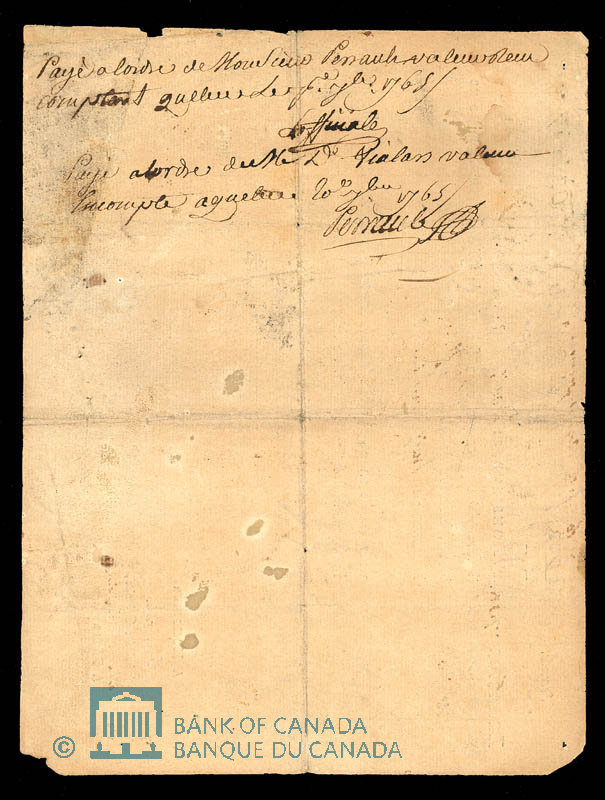 Payé a lordre de Monsieur Perrault valeur
comptant quebec le 7bre 1765
Payé a lordre de Vialars valeur
En compte a quebec 20 1765
Perrault
© BANK OF CANADA
BANQUE DU CANADA